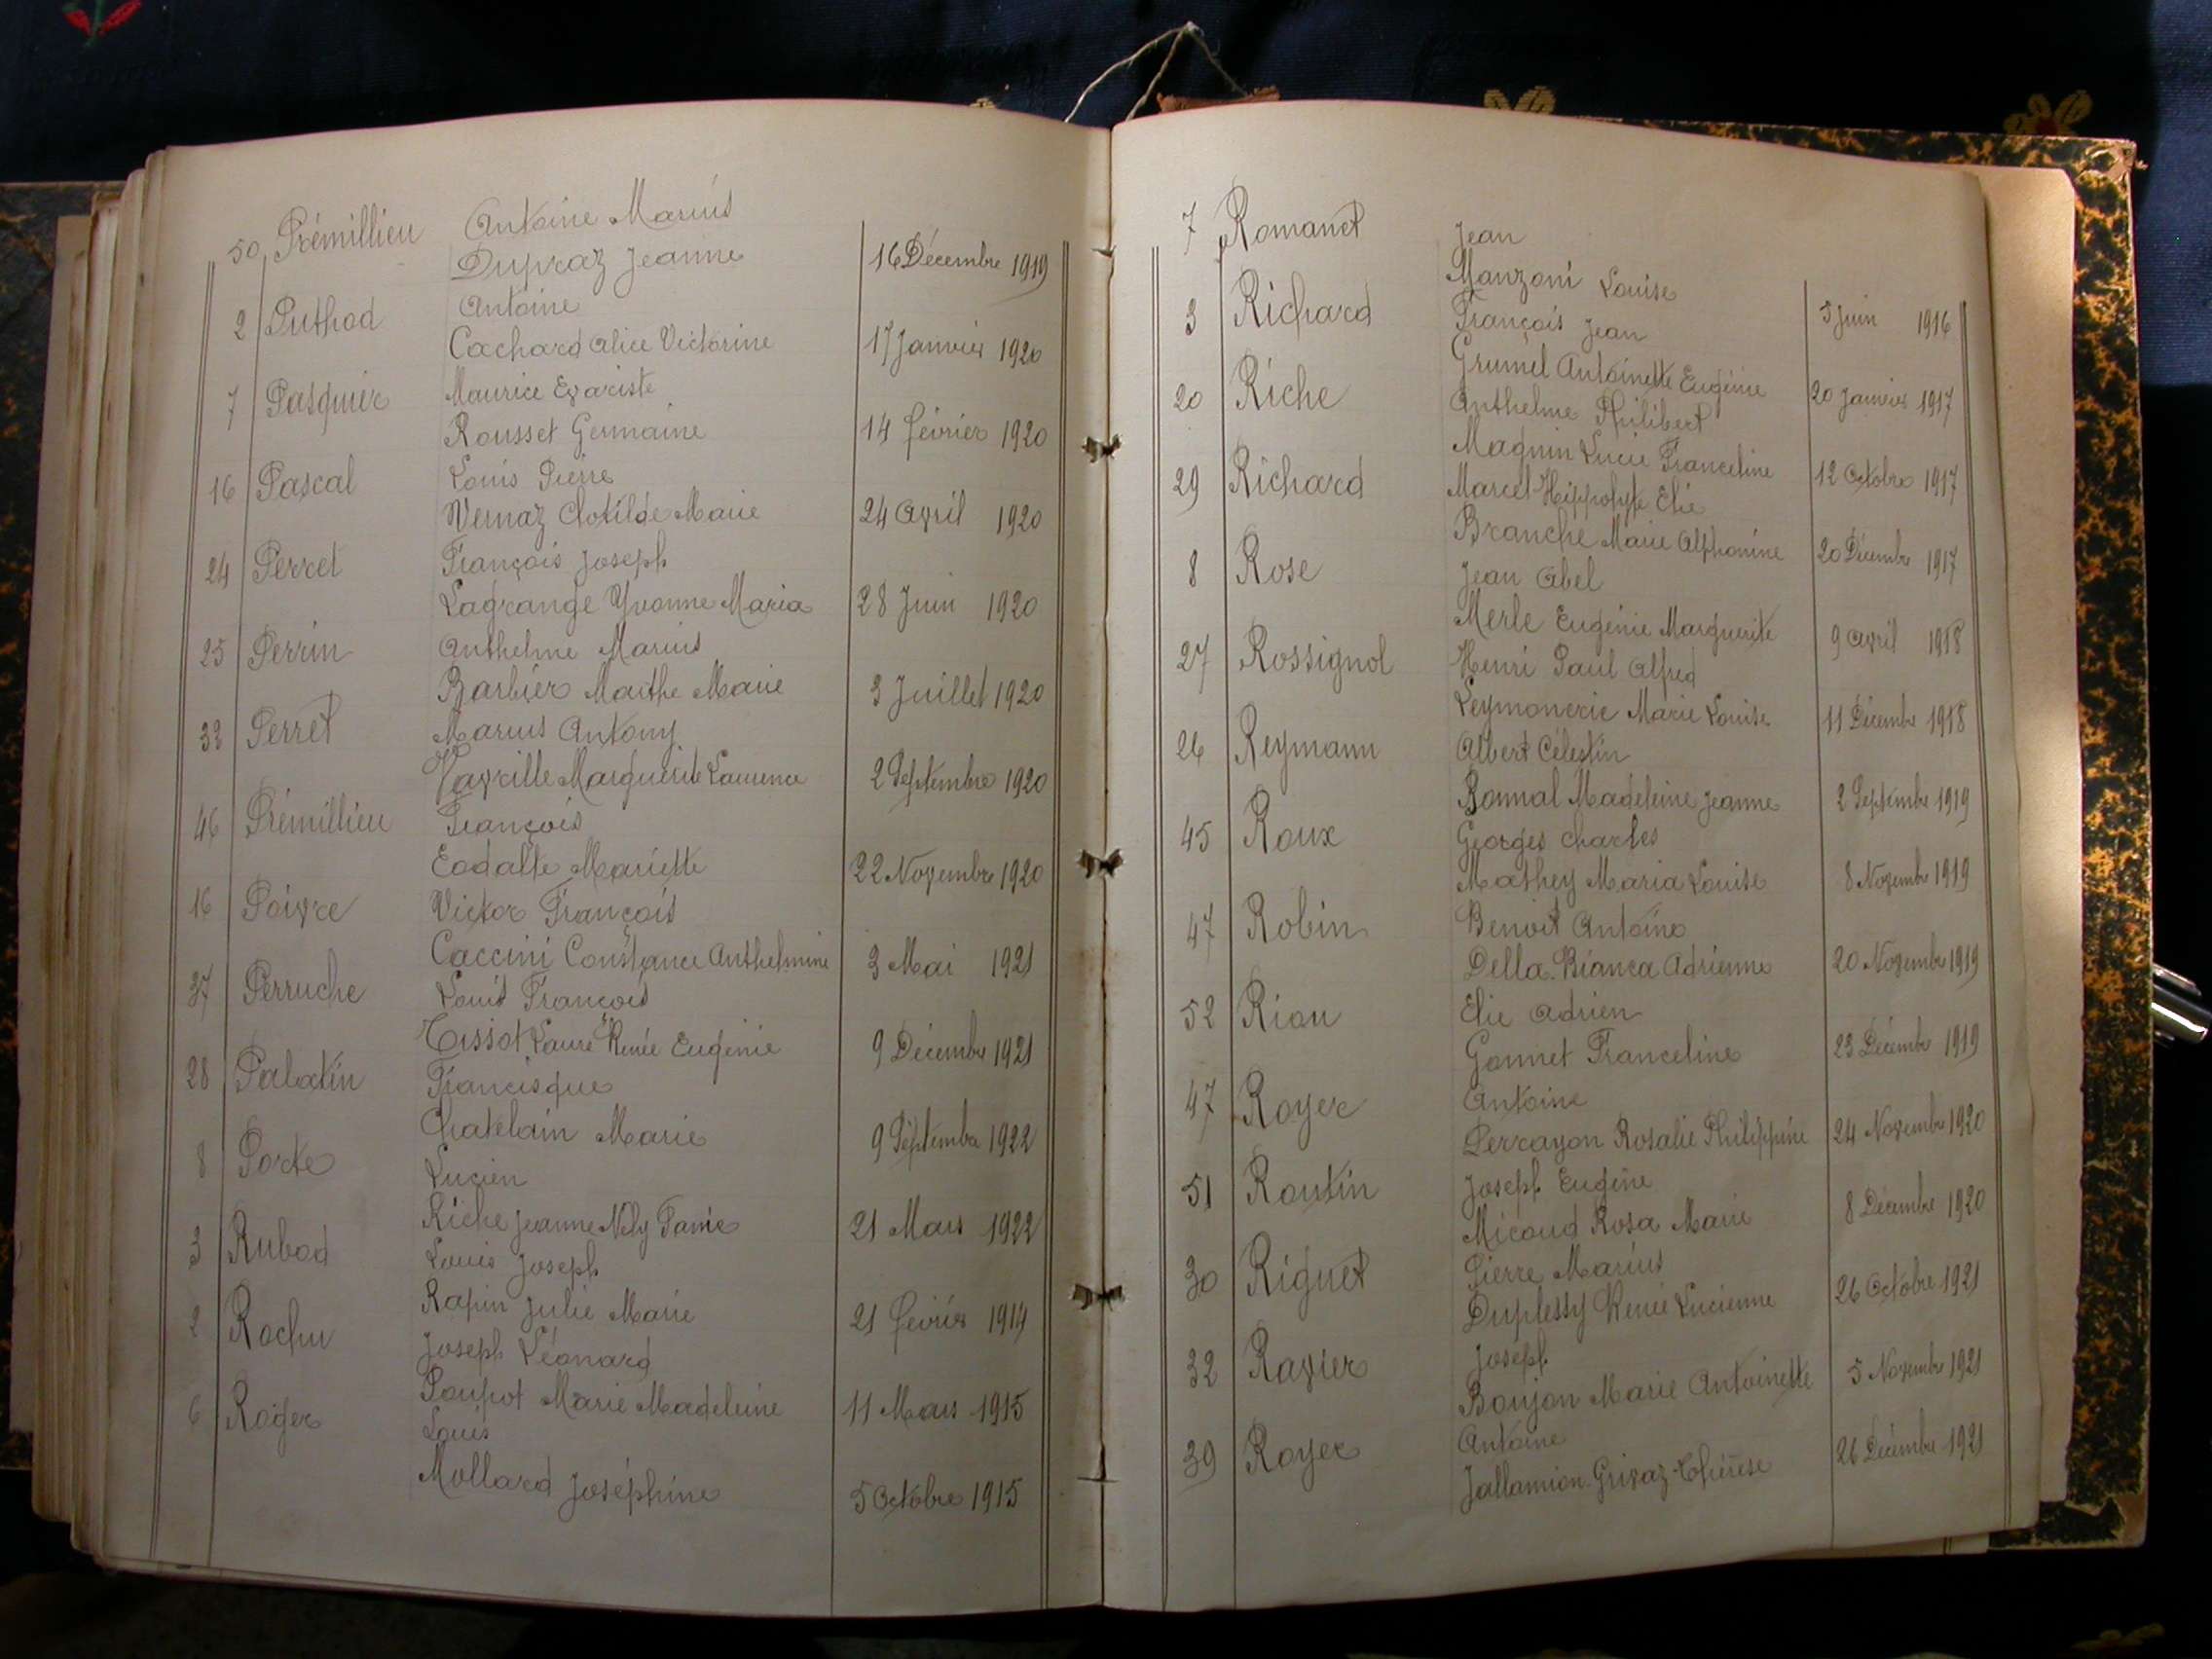 50 Prémillieu Antoine Marius
Dupraz Jeanne 16 Décembre 1919
2 Puthod Antoine
Cachard Alice Victorine 17 Janvier 1920
7 Pasquier Maurice Evariste
Rousset Germaine 14 février 1920
16 Pascal Louis Pierre
Vernaz Clotilde Marie 24 Avril 1920
24 Perret François Joseph
Lagrange Yvonne Maria 28 Juin 1920
25 Perrin Anthelme Marius
Barbier Marthe Marie 3 Juillet 1920
33 Perret Marius Antony
Marguerite Laurence 2 Septembre 1920
46 Prémillieu François
Mariette 22 Novembre 1920
16 Poivre Victor François
Caccini Constance Anthelmine 3 Mai 1921
37 Perruche Louis François
Tissot Laure Renée Eugénie 9 Décembre 1921
28 Palatin Francisque
Chatelain Marie 9 Septembre 1922
8 Porte Lucien
Riche Jeanne Nély 21 Mars 1922
3 Rubod Louis Joseph
Rapin Julie Marie 21 février 1914
2 Rochu Joseph Léonard
Poupot Marie Madeleine 11 Mars 1915
6 Roger Louis
Mollard Joséphine 5 Octobre 1915
7 Romanet Jean
Manzoni Louise 5 Juin 1916
3 Richard François Jean
Grumel Antoinette Eugénie 20 Janvier 1917
20 Riche Anthelme Philibert
Magnin Lucie Franceline 12 Octobre 1917
29 Richard Marcel Hippolyte Elie
Branche Marie Alphonsine 20 Décembre 1917
8 Rose Jean Abel
Merle Eugénie Marguerite 9 Avril 1918
27 Rossignol Henri Paul Alfred
Leymonerie Marie Louise 11 Décembre 1918
26 Reymann Albert Célestin
Bonnal Madeleine Jeanne 2 Septembre 1919
45 Roux Georges Charles
Mathey Maria Louise 8 Novembre 1919
47 Robin Benoit Antoine
Della-Bianca Adrienne 20 Novembre 1919
52 Riou Elie Adrien
Gonnet Franceline 23 Décembre 1919
47 Royer Antoine
Perrayon Rosalie Philippine 24 Novembre 1920
51 Routin Joseph Eugène
Micoud Rosa Marie 8 Décembre 1920
30 Riguet Pierre Marius
Duplessy Renée Lucienne 26 Octobre 1921
32 Ravier Joseph
Boujon Marie Antoinette 5 Novembre 1921
39 Royer Antoine
Jallamion-Grivaz Thérèse 26 Décembre 1921